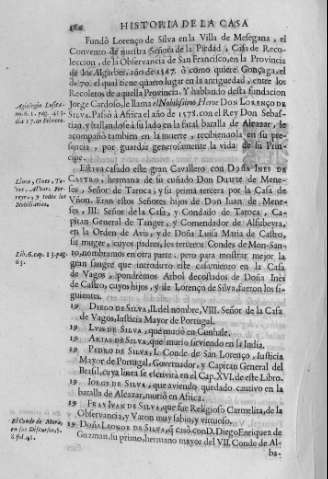 HISTORIA DE LA CASA
Fundò Lorenço de Silva en la Villa de Mesegana, el
Convento de nuestra Señora de la Piedad, à Casa de Reco-
leccion, de la Observancia de San Francisco, en la Provincia
de los Algarbes, año de 1567. ò como quiere Gonçaga, el
de 70. el qual tiene quarto lugar en la antiguedad, entre los
Recoletos de aquella Provincia. Y hablando desta fundacion
Jorge Cardoso, le llama el Nobilissimo Heroe DON LORENÇO DE
SILVA. Passò à Africa el año de 1578. con el Rey Don Sebas-
tian, y hallandose à su lado en la fatal batalla de Alcazar, le
acompañò tambien en la muerte, recibiendola en su pre-
sencia, por guardar generosamente la vida de su Prin-
cipe.
Estava casado este gran Cavallero con DOÑA INES DE
CASTRO, hermana de su cuñado Don Duarte de Mene-
ses, Señor de Taroca; y su prima tercera por la Casa de
Vñon. Eran estos Señores hijos de Don Juan de Mene-
ses, III. Señor de la Casa, y Condado de Taroca, Ca-
pitan General de Tanger, y Comendador de Albufeyra,
en la Orden de Avis, y de Doña Luisa Maria de Castro,
su muger, cuyos padres, los terceros Condes de Mon-San-
to, nombramos en otra parte, pero para mostrar mejor la
gran sangre que introduxo este casamiento en la Casa
de Vagos, pondrèmos Arbol de costados de Doña Inès
de Castro, cuyos hijos, y de Lorenço de Silva, fueron los si-
guientes.
19 DIEGO DE SILVA, II. del nombre, VIII. Señor de la Casa
de Vagos, Iusticia Mayor de Portugal.
19 LVIS DE SILVA, que muriò en
19 ARIAS DE SILVA, que muriò sirviendo en la India.
19 PEDRO DE SILVA, I. Conde de San Lorenço, Iusticia
Mayor de Portugal, Governador, y Capitan General del
Brasil, cuya linea se escrivirà en el Cap. XVI. de este Libro.
19 JORGE DE SILVA, que aviendo quedado cautivo en la
batalla de Alcazar, muriò en Africa.
19 FRAY IVAN DE SILVA, que fue Religioso Carmelita, de la
Observancia, y Varon muy sabio, y virtuoso.
19 DOÑA LEONOR DE SILVA, q̃ casò con D. Diego Enriquez de
Guzman, su primo, hermano mayor del VII. Conde de Al-
ba-